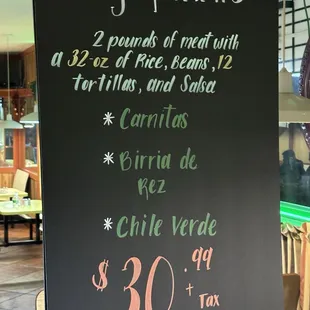 2 pounds of meat with
a 32-oz of Rice, Beans, 12
tortillas, and Salsa
* Carnitas
* Birria de
Rez
* Chile Verde
$30.99
+ Tax